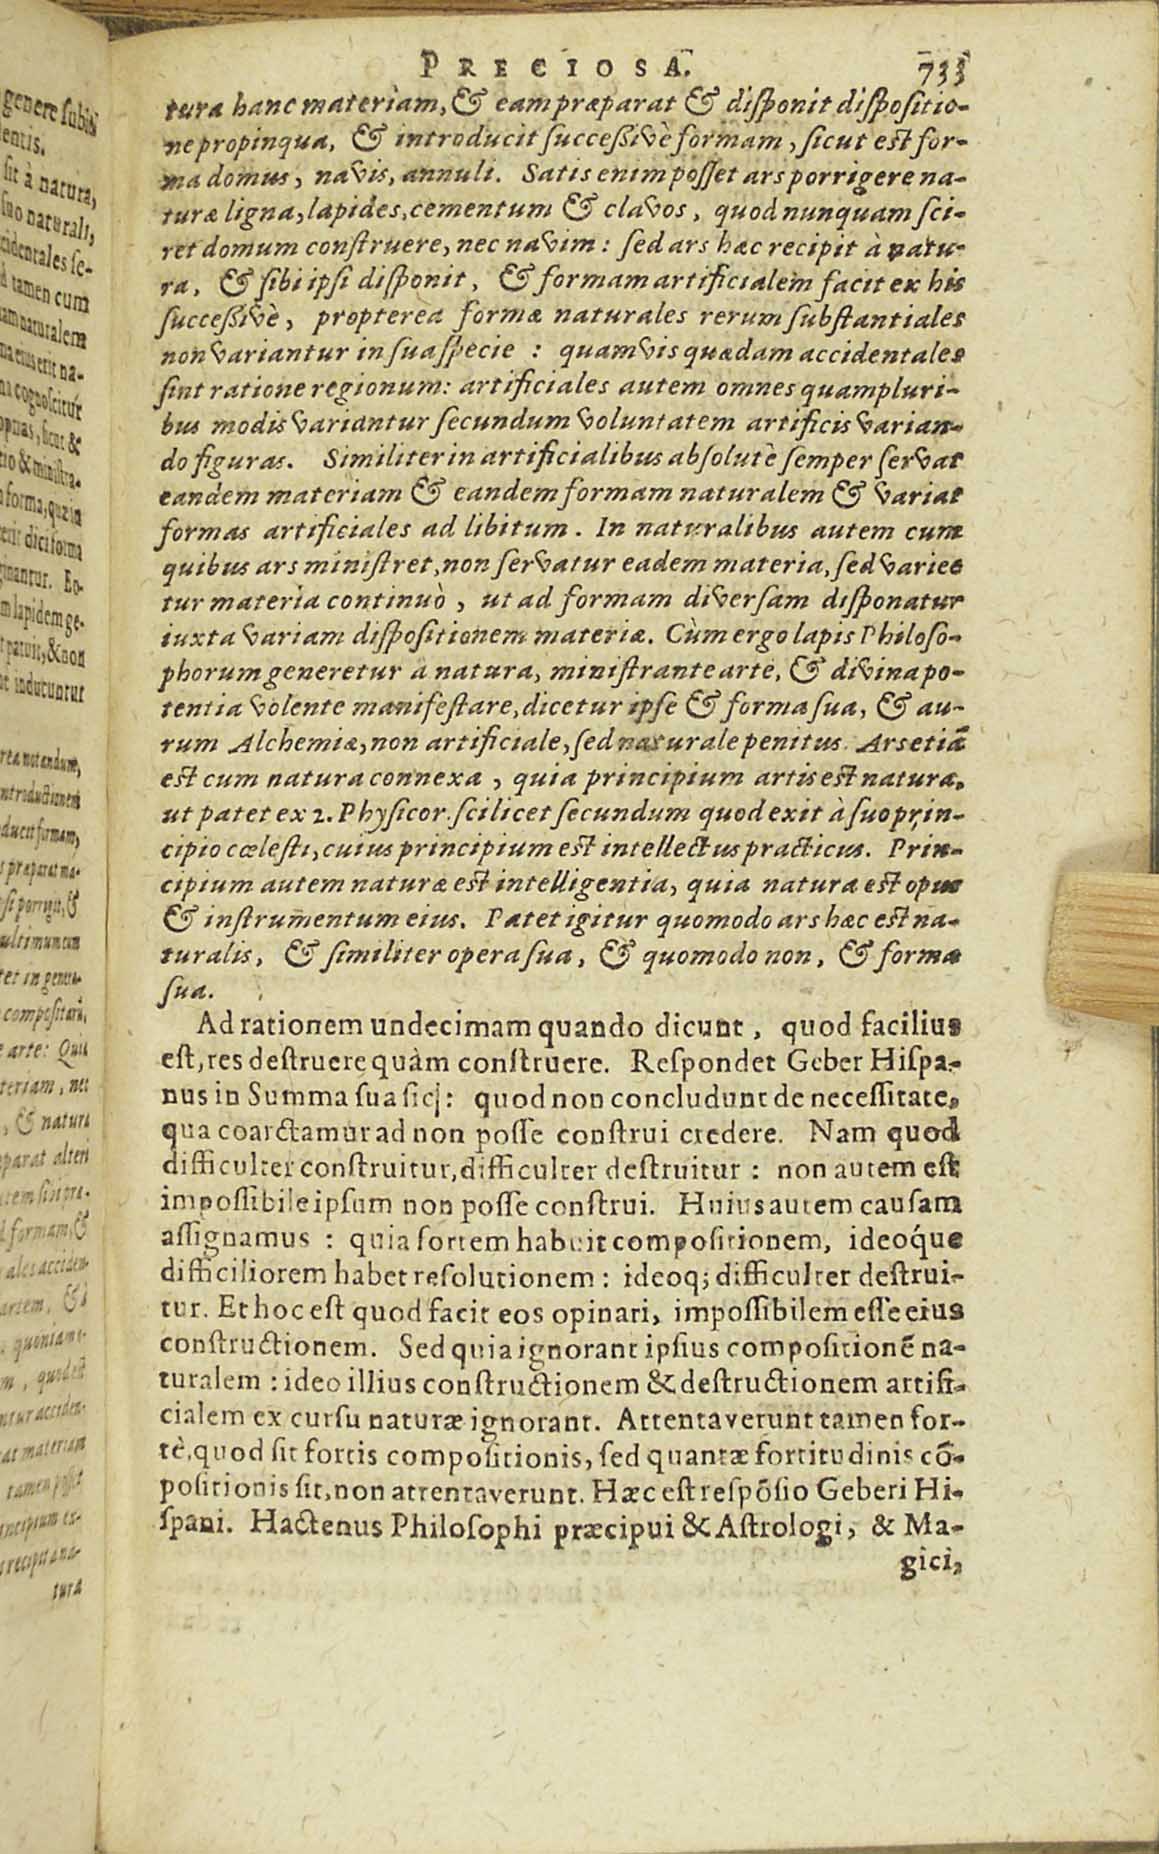 PRECIOSA. 733
tura hanc materiam, & eam præparat & disponit dispositio-
ne propinqua, & introducit successivè formam, sicut est for-
ma domus, navis, annuli. Satis enim posset ars porrigere na-
turæ ligna, lapides, cementum & clavos, quod nunquam sci-
ret domum construere, nec navim: sed ars hæc recipit à natu-
ra, & sibi ipsi disponit, & formam artificialem facit ex his
successivè, propterea formæ naturales rerum substantiales
non variantur in sua specie: quamvis quædam accidentales
sint ratione regionum: artificiales autem omnes quampluri-
bus modis variantur secundum voluntatem artificis varian-
do figuras. Similiter in artificialibus absolutè semper servat
eandem materiam & eandem formam naturalem & variat
formas artificiales ad libitum. In naturalibus autem cum
quibus ars ministret, non servatur eadem materia, sed varie-
tur materia continuò, ut ad formam diversam disponatur
iuxta variam dispositionem materiæ. Cùm ergo lapis Philoso-
phorum generetur a natura, ministrante arte, & divina po-
tentia volente manifestare, dicetur ipse & forma sua, & au-
rum Alchemiæ, non artificiale, sed naturale penitus. Ars etiã
est cum natura connexa, quia principium artis est natura,
ut patet ex 2. Physicor. scilicet secundum quod exit à suo prin-
cipio cœlesti, cuius principium est intellectus practicus. Prin-
cipium autem naturæ est intelligentia, quia natura est opus
& instrumentum eius. Patet igitur quomodo ars hæc est na-
turalis, & similiter opera sua, & quomodo non, & forma
sua.
Ad rationem undecimam quando dicunt, quod facilius
est, res destruere quàm construere. Respondet Geber Hispa-
nus in Summa sua sic: quod non concludunt de necessitate,
qua coarctamur ad non posse construi credere. Nam quod
difficulter construitur, difficulter destruitur: non autem est
impossibile ipsum non posse construi. Huius autem causam
assignamus: quia fortem habuit compositionem, ideoq́ue
difficiliorem habet resolutionem: ideoq; difficulter destrui-
tur. Et hoc est quod facit eos opinari, impossibilem esse eius
constructionem. Sed quia ignorant ipsius compositionẽ na-
turalem: ideo illius constructionem & destructionem artifi-
cialem ex cursu naturæ ignorant. Attentaverunt tamen for-
tè, quod sit fortis compositionis, sed quantæ fortitudinis cõ-
positionis sit, non attentaverunt. Hæc est respõsio Geberi Hi-
spani. Hactenus Philosophi præcipui & Astrologi, & Ma-
gici,